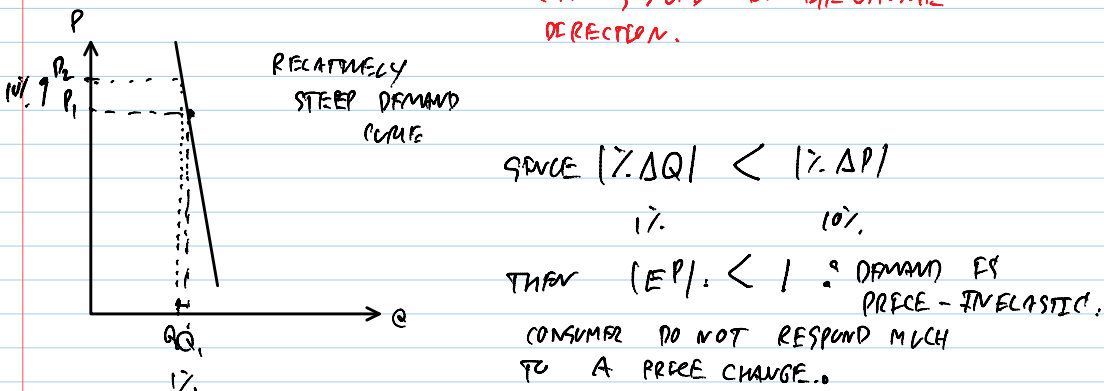 DIRECTION.
P
RELATIVELY
STEEP DEMAND
CURVE
P2
10% ↑
P1
SINCE |%ΔQ| < |%ΔP|
1% 10%.
THEN |EP|. < 1 : DEMAND IS
PRICE-INELASTIC.
CONSUMER DO NOT RESPOND MUCH
TO A PRICE CHANGE..
Q
Q Q1
1%.